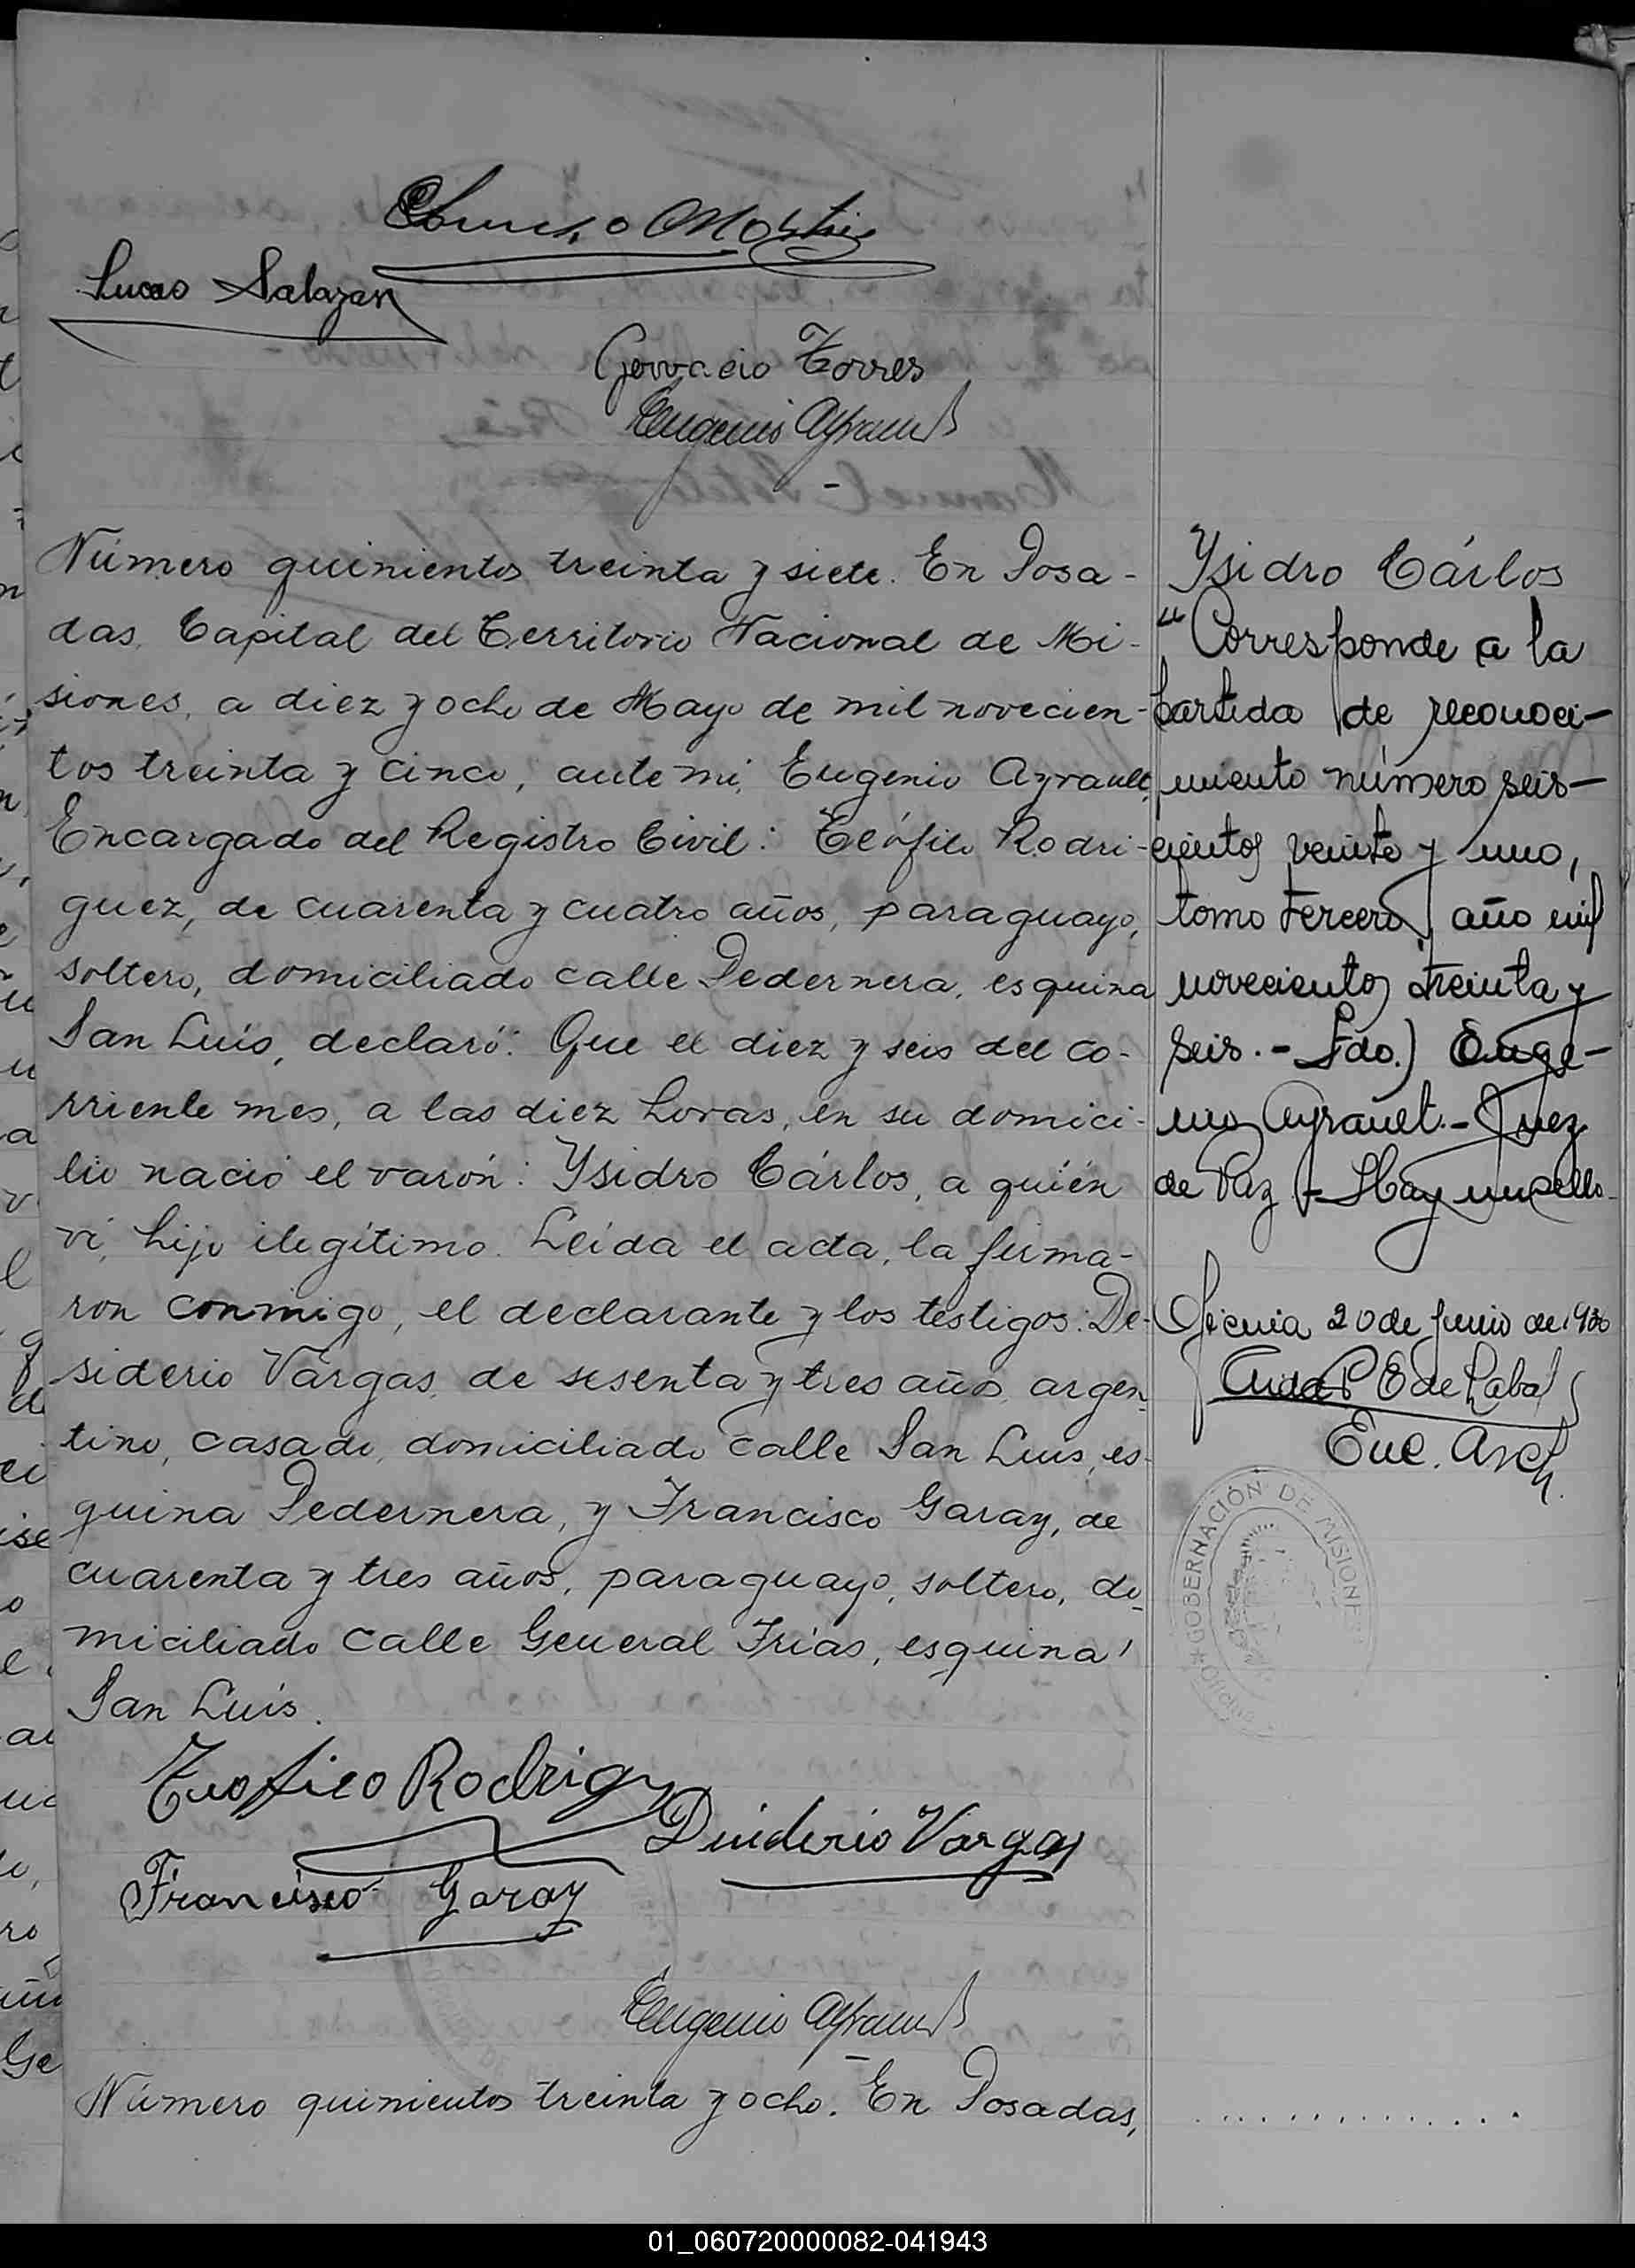 Lucas Salazar
Gervacio Torres
Eugenio Ayrault
Número quinientos treinta y siete. En Posa-
das, Capital del Territorio Nacional de Mi-
siones, a diez y ocho de Mayo de mil novecien-
tos treinta y cinco, ante mi, Eugenio Ayrault,
Encargado del Registro Civil: Teófilo Rodri-
guez, de cuarenta y cuatro años, paraguayo,
soltero, domiciliado calle Pedernera, esquina
San Luís, declaró: Que el diez y seis del co-
rriente mes, a las diez horas, en su domici-
lio nació el varón: Ysidro Cárlos, a quién
vi, hijo ilegítimo. Leída el acta, la firma-
ron conmigo, el declarante y los testigos: De-
siderio Vargas, de sesenta y tres años, argen-
tino, casado, domiciliado calle San Luis, es-
quina Pedernera, y Francisco Garay, de
cuarenta y tres años, paraguayo, soltero, do-
miciliado calle General Frías, esquina
San Luís.
Teofilo Rodrig
Desiderio Vargas
Francisco Garay
Eugenio Ayrault
Número quinientos treinta y ocho. En Posadas,
Ysidro Cárlos
"Corresponde a la
partida de reconoci-
miento número seis-
cientos veinte y uno,
tomo tercero, año mil
novecientos treinta y
seis.- Fdo.) Euge-
nio Ayrault.- Juez
de Paz - Hay un sello.
20 de Junio de 1936
Enc. Arch.
GOBERNACIÓN DE MISIONES
01_060720000082-041943